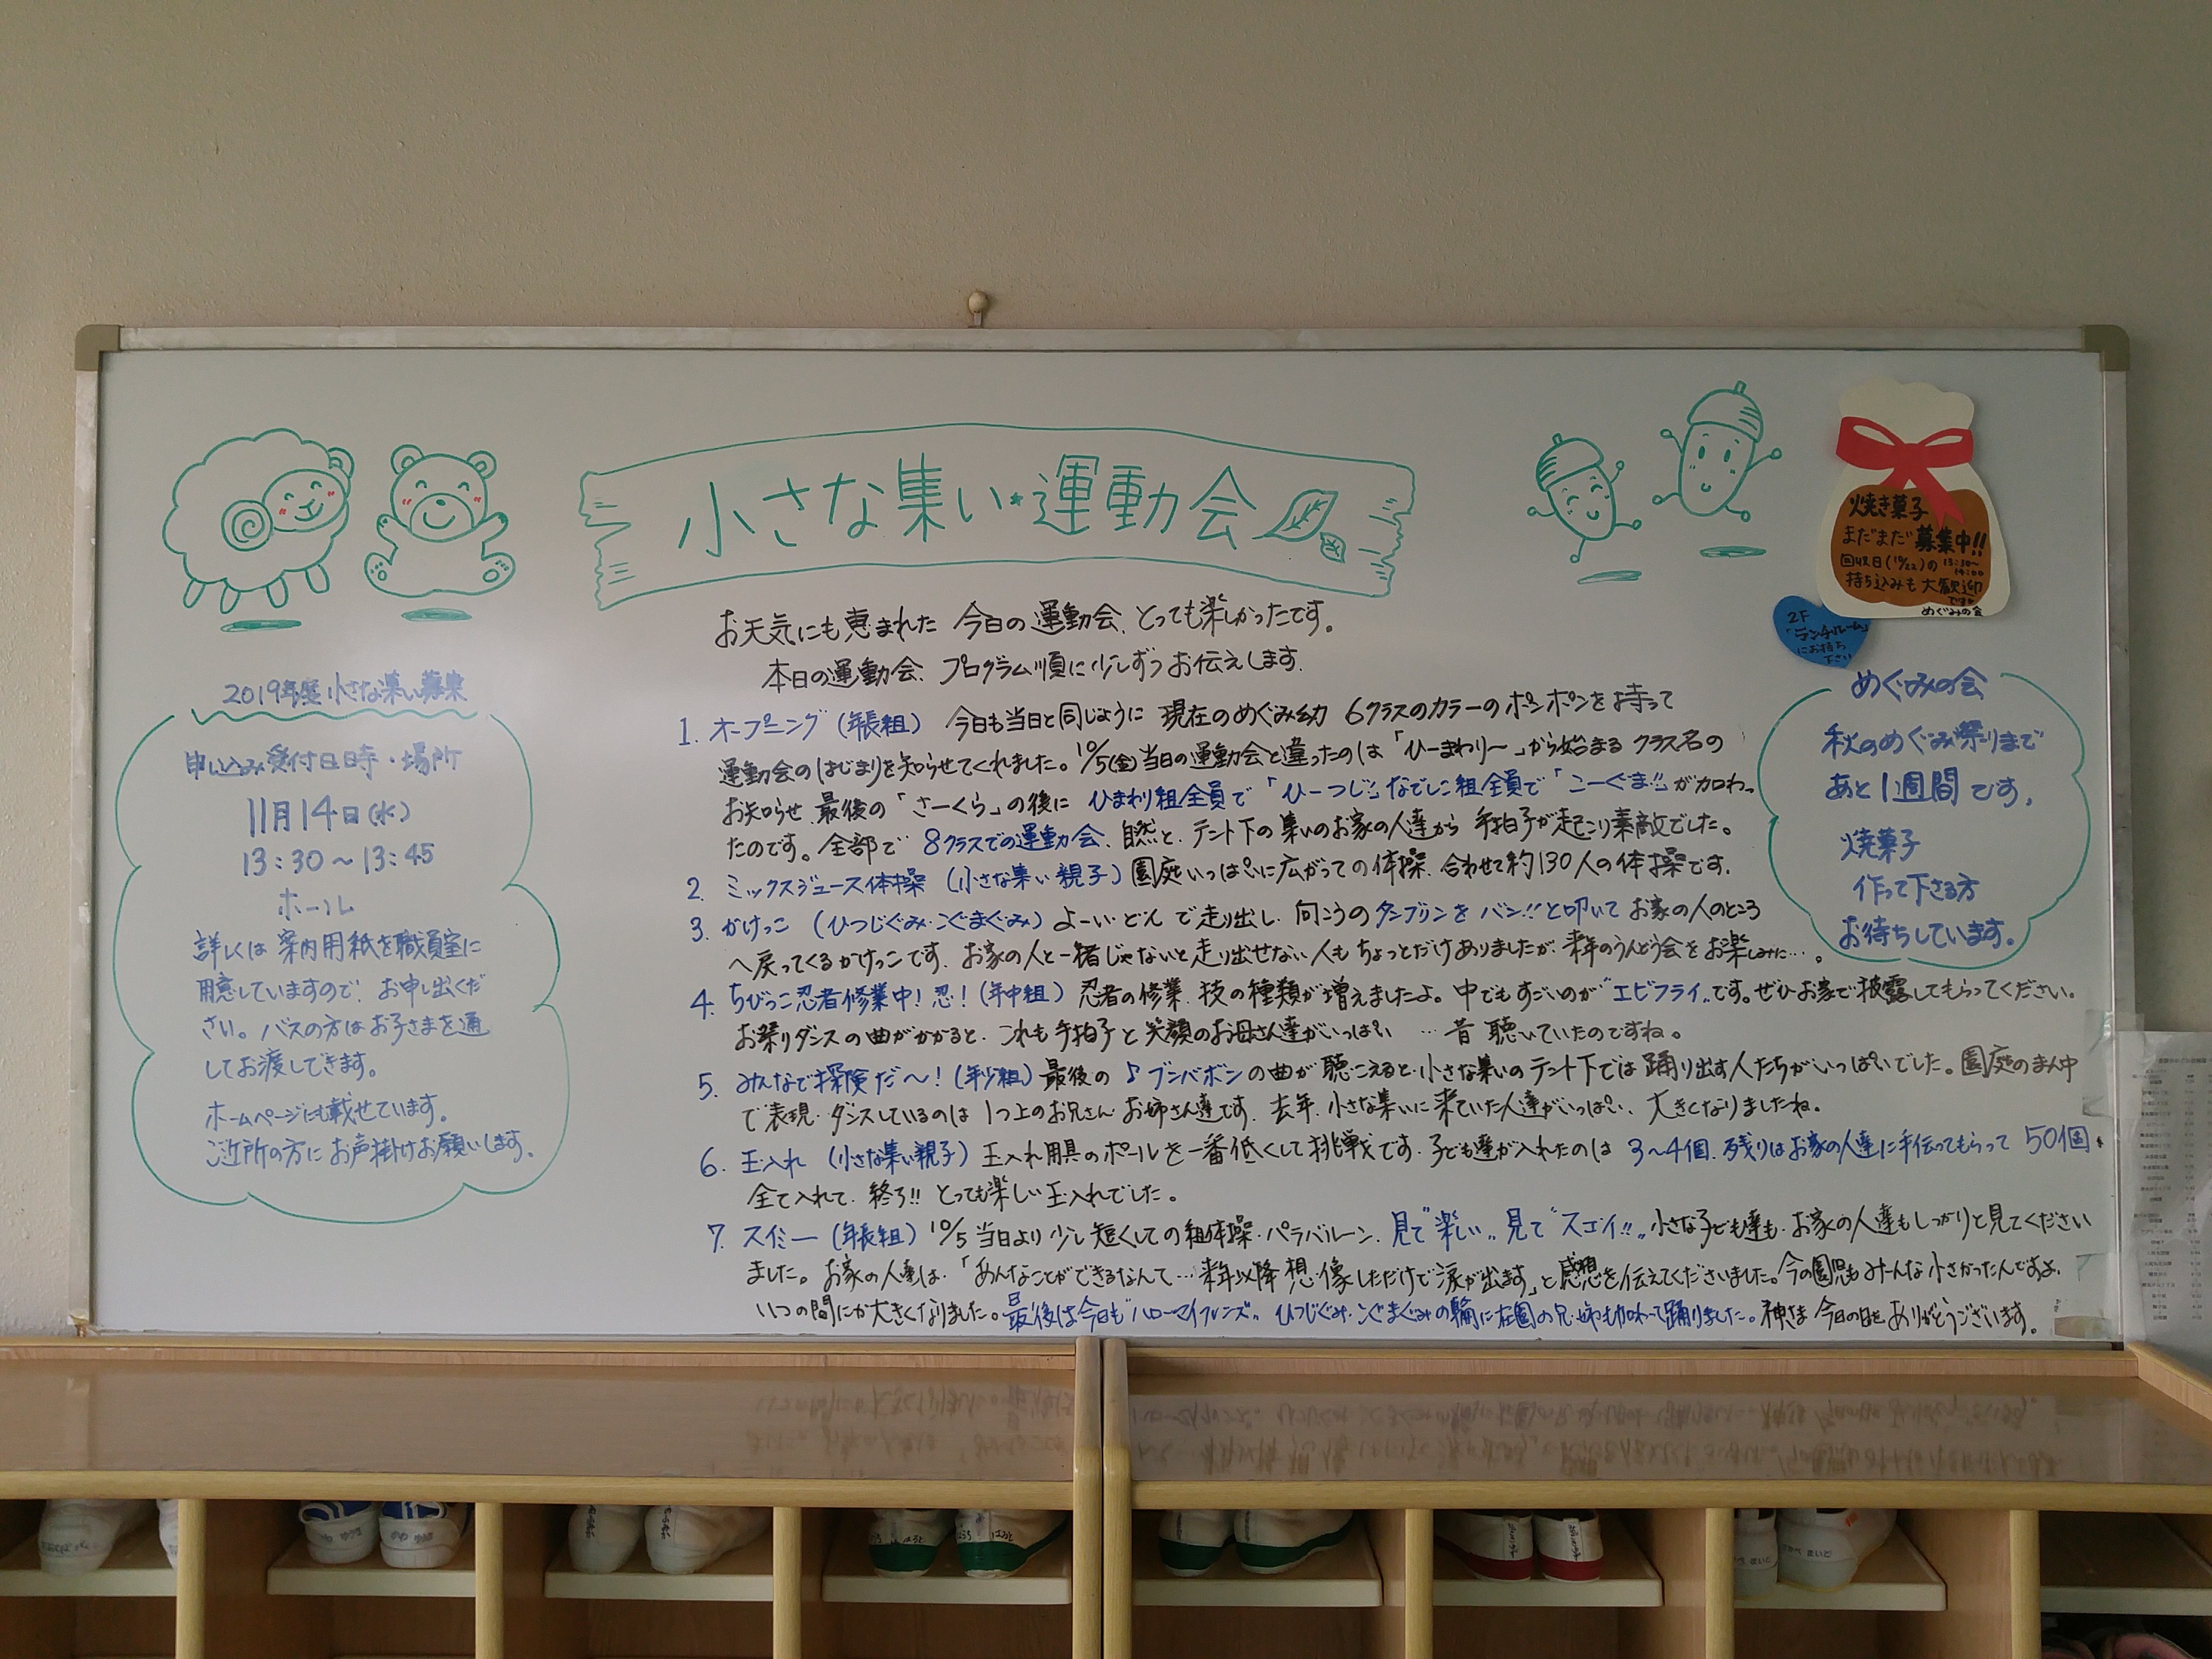 小さな集い・運動会
お天気にも恵まれた 今日の運動会、とっても楽しかったです。
本日の運動会、プログラム順に少しずつお伝えします。
1. オープニング (年長組) 今日も当日と同じように 現在のめぐみ幼 6クラスのカラーのポンポンを持って
運動会のはじまりを知らせてくれました。10/5(金)当日の運動会と違ったのは「ひーまわりー」から始まる クラス名の
お知らせ、最後の「さーくら」の後に ひまわり組全員で「ひーつじ!!」なでしこ組全員で「こーぐま!!」が加わっ
たのです。全部で 8クラスでの運動会、自然と、テント下の集いのお家の人達から 手拍子が起こり素敵でした。
2. ミックスジュース体操 (小さな集い親子) 園庭いっぱいに広がっての体操、合わせて約130人の体操です。
3. かけっこ (ひつじぐみ・こぐまぐみ) よーい・どん で走り出し、向こうのタンブリンを バン!!と叩いて お家の人のところ
へ戻ってくるかけっこです。お家の人と一緒じゃないと走り出せない人も ちょっとだけありましたが、来年のうんどう会をお楽しみに…。
4. ちびっこ忍者修業中!忍!(年中組) 忍者の修業、技の種類が増えましたよ。中でもすごいのが“エビフライ”です。ぜひお家で披露してもらってください。
お祭りダンスの曲がかかると、これも手拍子と 笑顔のお母さん達がいっぱい …昔 聴いていたのですね。
5. みんなで探険だ〜!(年少組) 最後の ♪ブンバボンの曲が 聴こえると、小さな集いの テント下では 踊り出す人たちがいっぱいでした。園庭のまん中
で表現・ダンスしているのは 1つ上のお兄さん お姉さん達です。去年、小さな集いに来ていた人達がいっぱい、大きくなりましたね。
6. 玉入れ (小さな集い親子) 玉入れ用具のポールを一番低くして挑戦です。子ども達が入れたのは 3〜4個、残りはお家の人達に手伝ってもらって 50個、
全て入れて、終了!! とっても楽しい玉入れでした。
7. スイミー (年長組) 10/5 当日より 少し短くしての組体操・パラバルーン、見て“楽しい”、見て“スゴイ!!”、小さな子ども達も、お家の人達もしっかりと見てください
ました。お家の人達は、「あんなことができるなんて…来年以降 想像しただけで涙が出ます」と感想を伝えてくださいました。今の園児もみんな小さかったんですよ、
いつの間にか大きくなりました。最後は今日も“ハローマイフレンズ”、ひつじぐみ・こぐまぐみの輪に在園の兄・姉も加わって踊りました。神さま 今日の日を ありがとうございます。
2019年度 小さな集い募集
申し込み受付日時・場所
11月14日(水)
13:30〜13:45
ホール
詳しくは 案内用紙を職員室に
用意していますので、お申し出くだ
さい。バスの方はお子さまを通
してお渡しできます。
ホームページにも載せています。
ご近所の方に お声掛けお願いします。
焼き菓子
まだまだ募集中!!
回収日(10/22)の 13:30〜
14:00
持ち込みも 大歓迎
です
めぐみの会
2F
「ランチルーム」
にお持ち
下さい
めぐみの会
秋のめぐみ祭りまで
あと1週間です。
焼菓子
作って下さる方
お待ちしています。